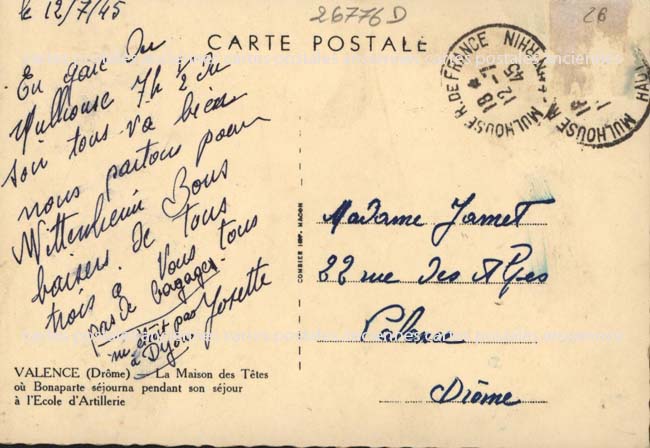 le 12/7/45
26776D
26
CARTE POSTALE
En gare du
Mulhouse 7h 1/2 du
soir tous va bien
nous partons pour
Wittenheim Bons
baisers de tous
trois à Vous tous
Josette
pas de bagages
à Dijon
MULHOUSE R. DE FRANCE
18
12 - 7
45
HAUT-RHIN
MULHOUSE
Madame Jamet
22 rue des Alpes
Valence
Drôme
COMBIER IMP. MACON
cartes postales anciennes
VALENCE (Drôme) — La Maison des Têtes
où Bonaparte séjourna pendant son séjour
à l'Ecole d'Artillerie